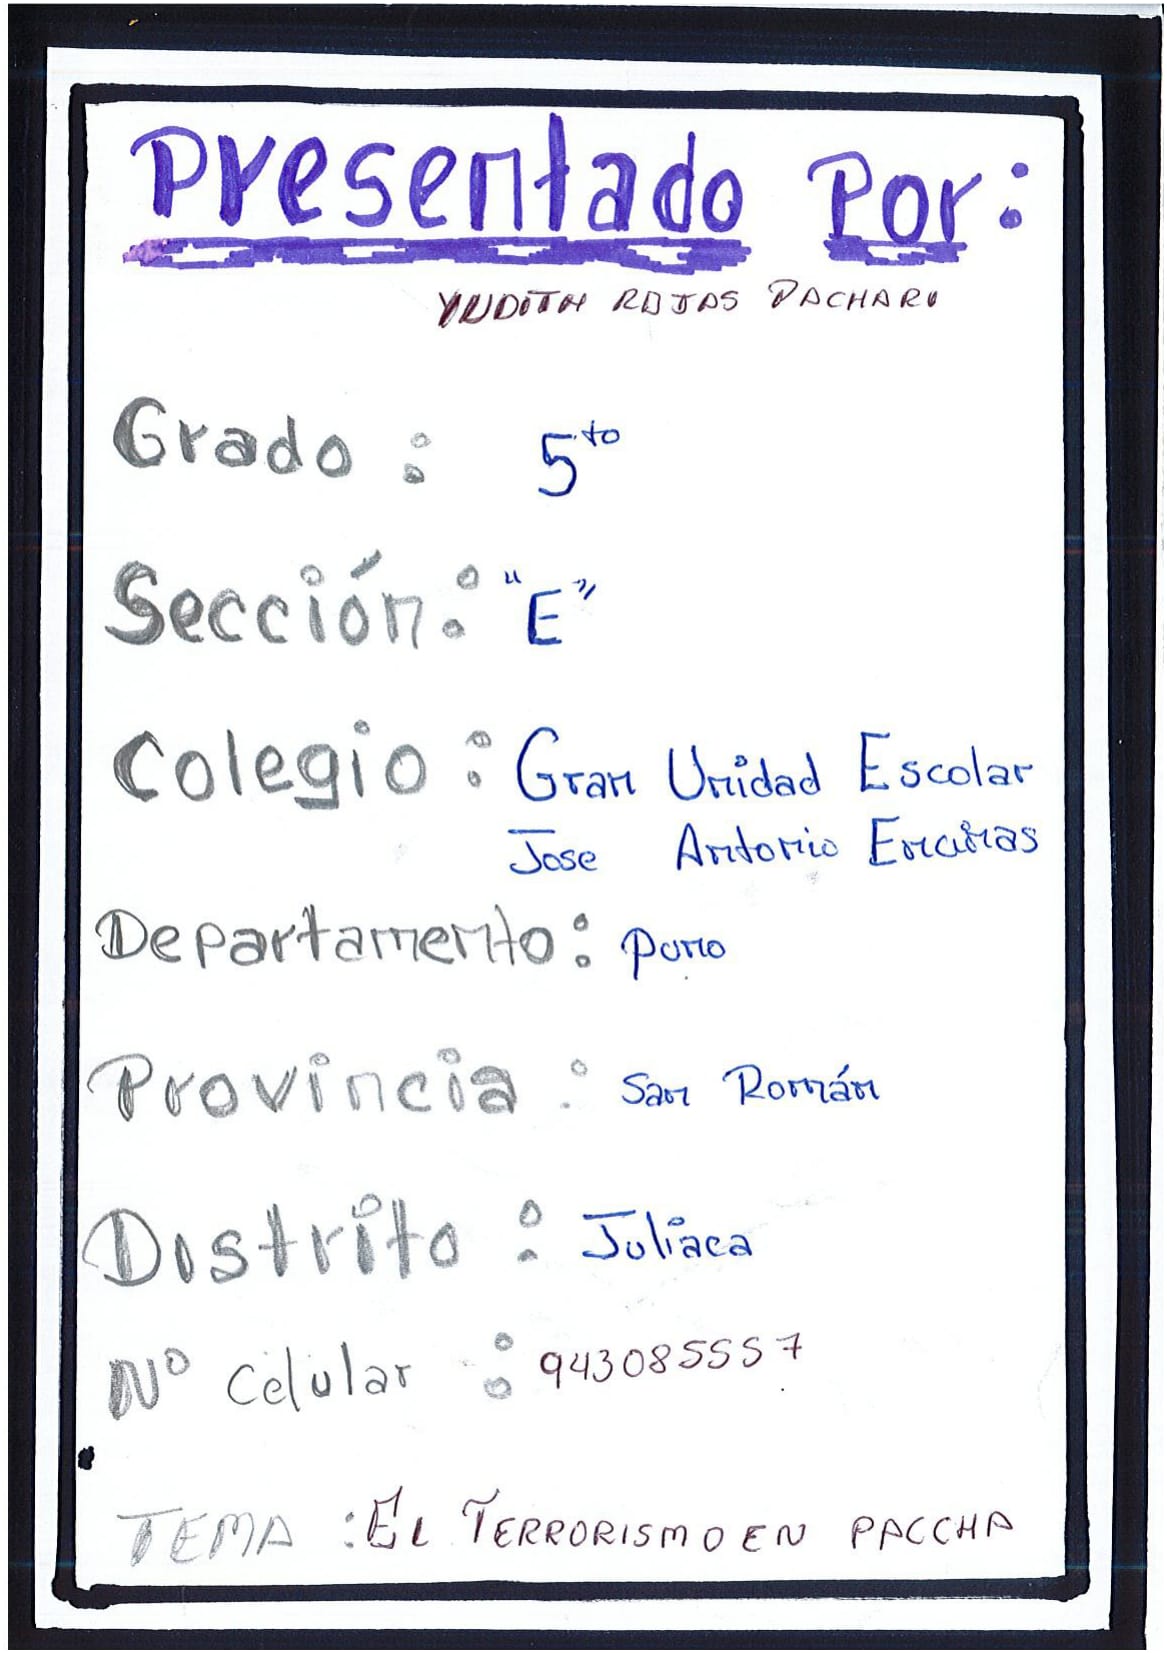 Presentado Por:
YUDITH ROJAS PACHARI
Grado : 5to
Sección : "E"
Colegio : Gran Unidad Escolar
Jose Antonio Encinas
Departamento : Puno
Provincia : San Román
Distrito : Juliaca
Nº Celular : 943085557
TEMA : EL TERRORISMO EN PACCHA